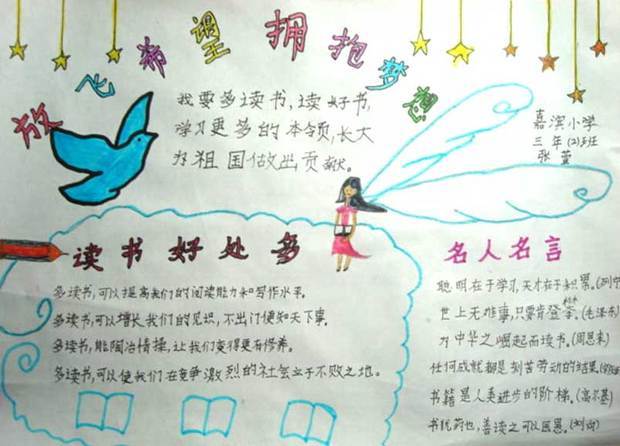 放飞希望 拥抱梦想
我要多读书,读好书,
学习更多的本领,长大
为祖国做出贡献。
嘉滨小学
三年(2)班
张萱
读书好处多
多读书,可以提高我们的阅读能力和写作水平。
多读书,可以增长我们的见识,不出门便知天下事。
多读书,能陶冶情操,让我们变得更有修养。
多读书,可以使我们在竞争激烈的社会立于不败之地。
名人名言
聪明在于学习,天才在于积累。(列宁
世上无难事,只要肯登攀。(毛泽东)
为中华之崛起而读书。(周恩来)
任何成就都是刻苦劳动的结果。
书籍是人类进步的阶梯。(高尔基)
书犹药也,善读之可以医愚。(刘向)